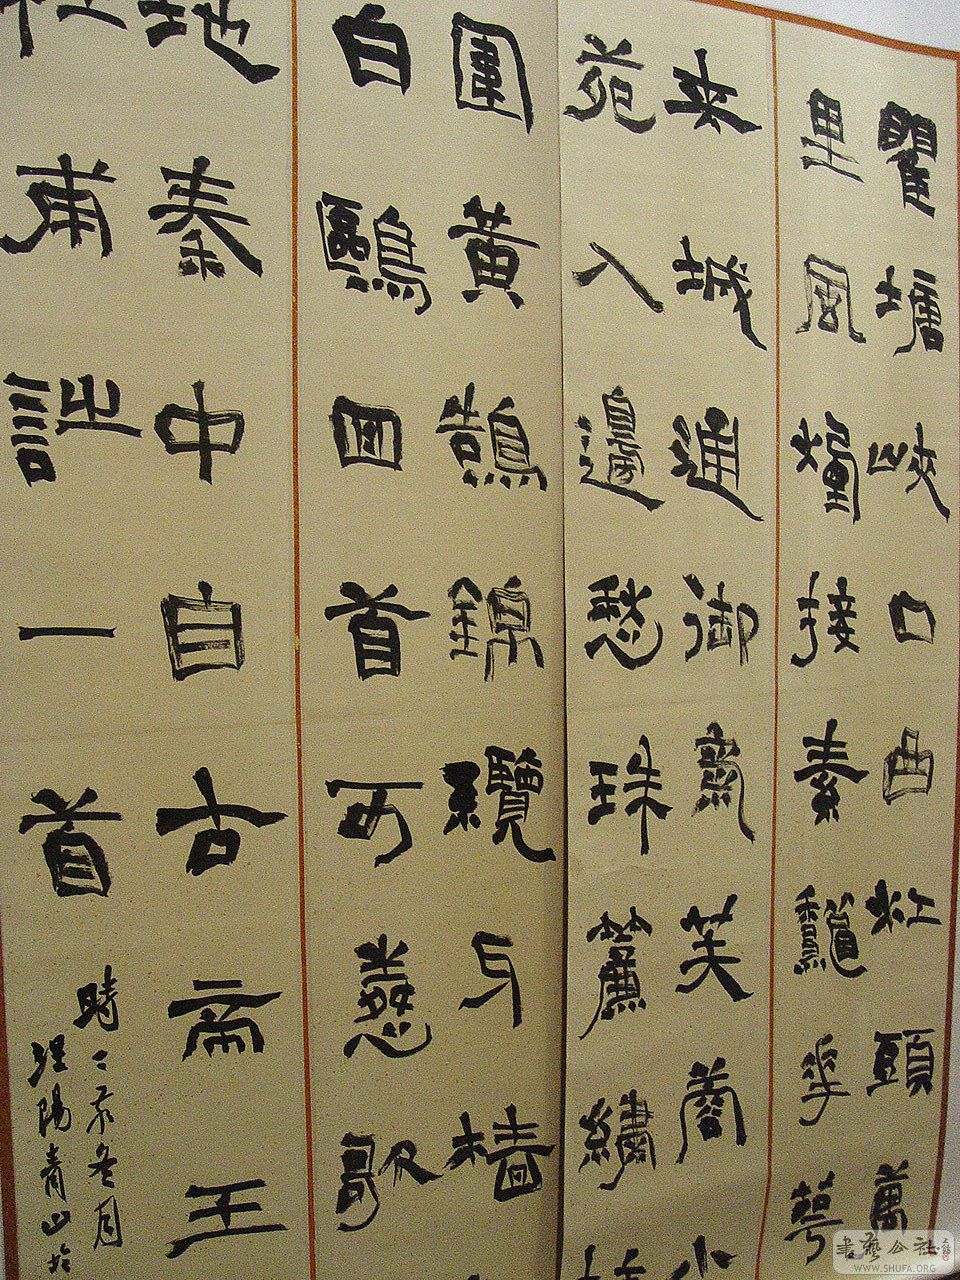 瞿塘峽口曲江頭萬
里風煙接素龝華萼
夾城通御氣芙蓉小
苑入邊愁珠簾繡柱
圍黃鵠錦纜牙檣
白鷗回首可憐歌
地秦中自古帝王
杜甫詩一首
時冬月
陽青山於
書藝公社
WWW.SHUFA.ORG